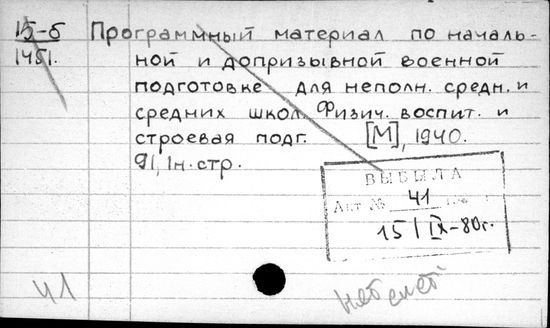 15-б Программный материал по началь-
1451. ной и допризывной военной
подготовке для неполн. средн. и
средних школ. Физич. воспит. и
строевая подг. [М], 1940.
91, 1н. стр.
ВЫБЫЛА
Акт № 41
15/IX-80г.
41